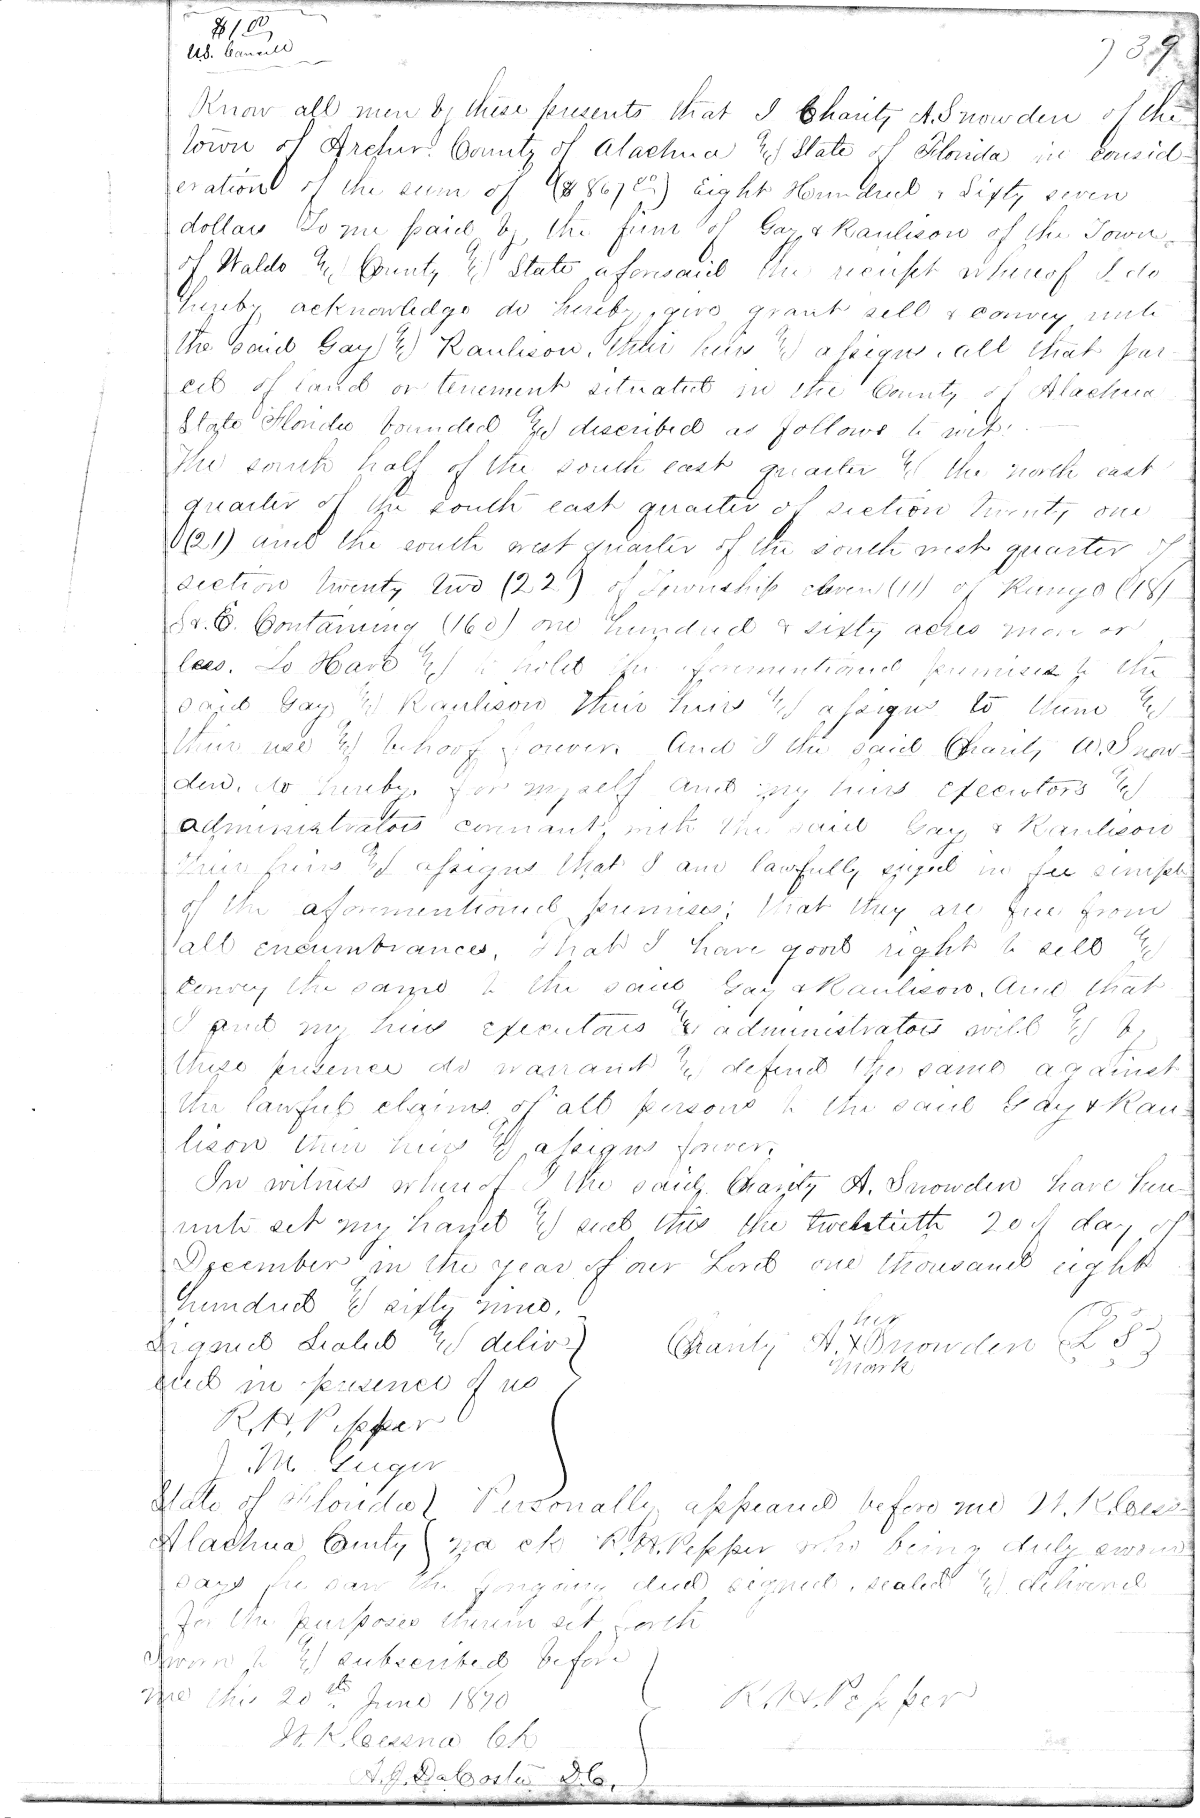 $1.00
U.S. Cancelld
739
Know all men by these presents that I Charity A. Snowden of the
town of Archer. County of Alachua & State of Florida in consid-
eration of the sum of ($867.00) Eight Hundred & Sixty seven
dollars To me paid by the firm of Gay & Raulison of the Town
of Waldo & County & State aforesaid the receipt whereof I do
hereby acknowledge do hereby, give grant sell & convey unto
the said Gay & Raulison, their heirs & assigns. all that par-
cel of land or tenement situated in the County of Alachua
State Florida bounded & described as follows to wit:
The south half of the south east quarter & the north east
quarter of the south east quarter of section twenty one
(21) and the south west quarter of the south west quarter of
section twenty two (22) of Township eleven (11) of Range (18)
S. & E. Containing (160) one hundred & sixty acres more or
less. To Have & to hold the aforementioned premises to the
said Gay & Raulison their heirs & assigns to them &
their use & behoof forever. And I the said Charity A. Snow-
den, do hereby, for myself and my heirs executors &
administrators covenant, with the said Gay & Raulison
their heirs & assigns that I am lawfully siezed in fee simple
of the aforementioned premises; that they are free from
all encumbrances, that I have good right to sell &
convey the same to the said Gay & Raulison. And that
I and my heirs executors & administrators will & by
these presence do warrant & defend the same against
the lawful claims of all persons to the said Gay & Rau-
lison their heirs & assigns forever.
In witness whereof I the said Charity A. Snowden have here-
unto set my hand & seal this the twentieth 20 of day of
December in the year of our Lord one thousand eight
hundred & sixty nine.
Signed Sealed & deliv-
ered in presence of us
her
Charity A. X Snowden (L S)
mark
R. H. Pepper
J. M. Geiger
State of Florida } Personally appeared before me W. K. Cess-
Alachua County } na clk R. H. Pepper who being duly sworn
says he saw the foregoing deed signed, sealed & delivered
for the purposes therein set forth
Sworn to & subscribed before
me this 20th June 1870
R. H. Pepper
W. K. Cessna Clk
A. J. DaCosta D.C.